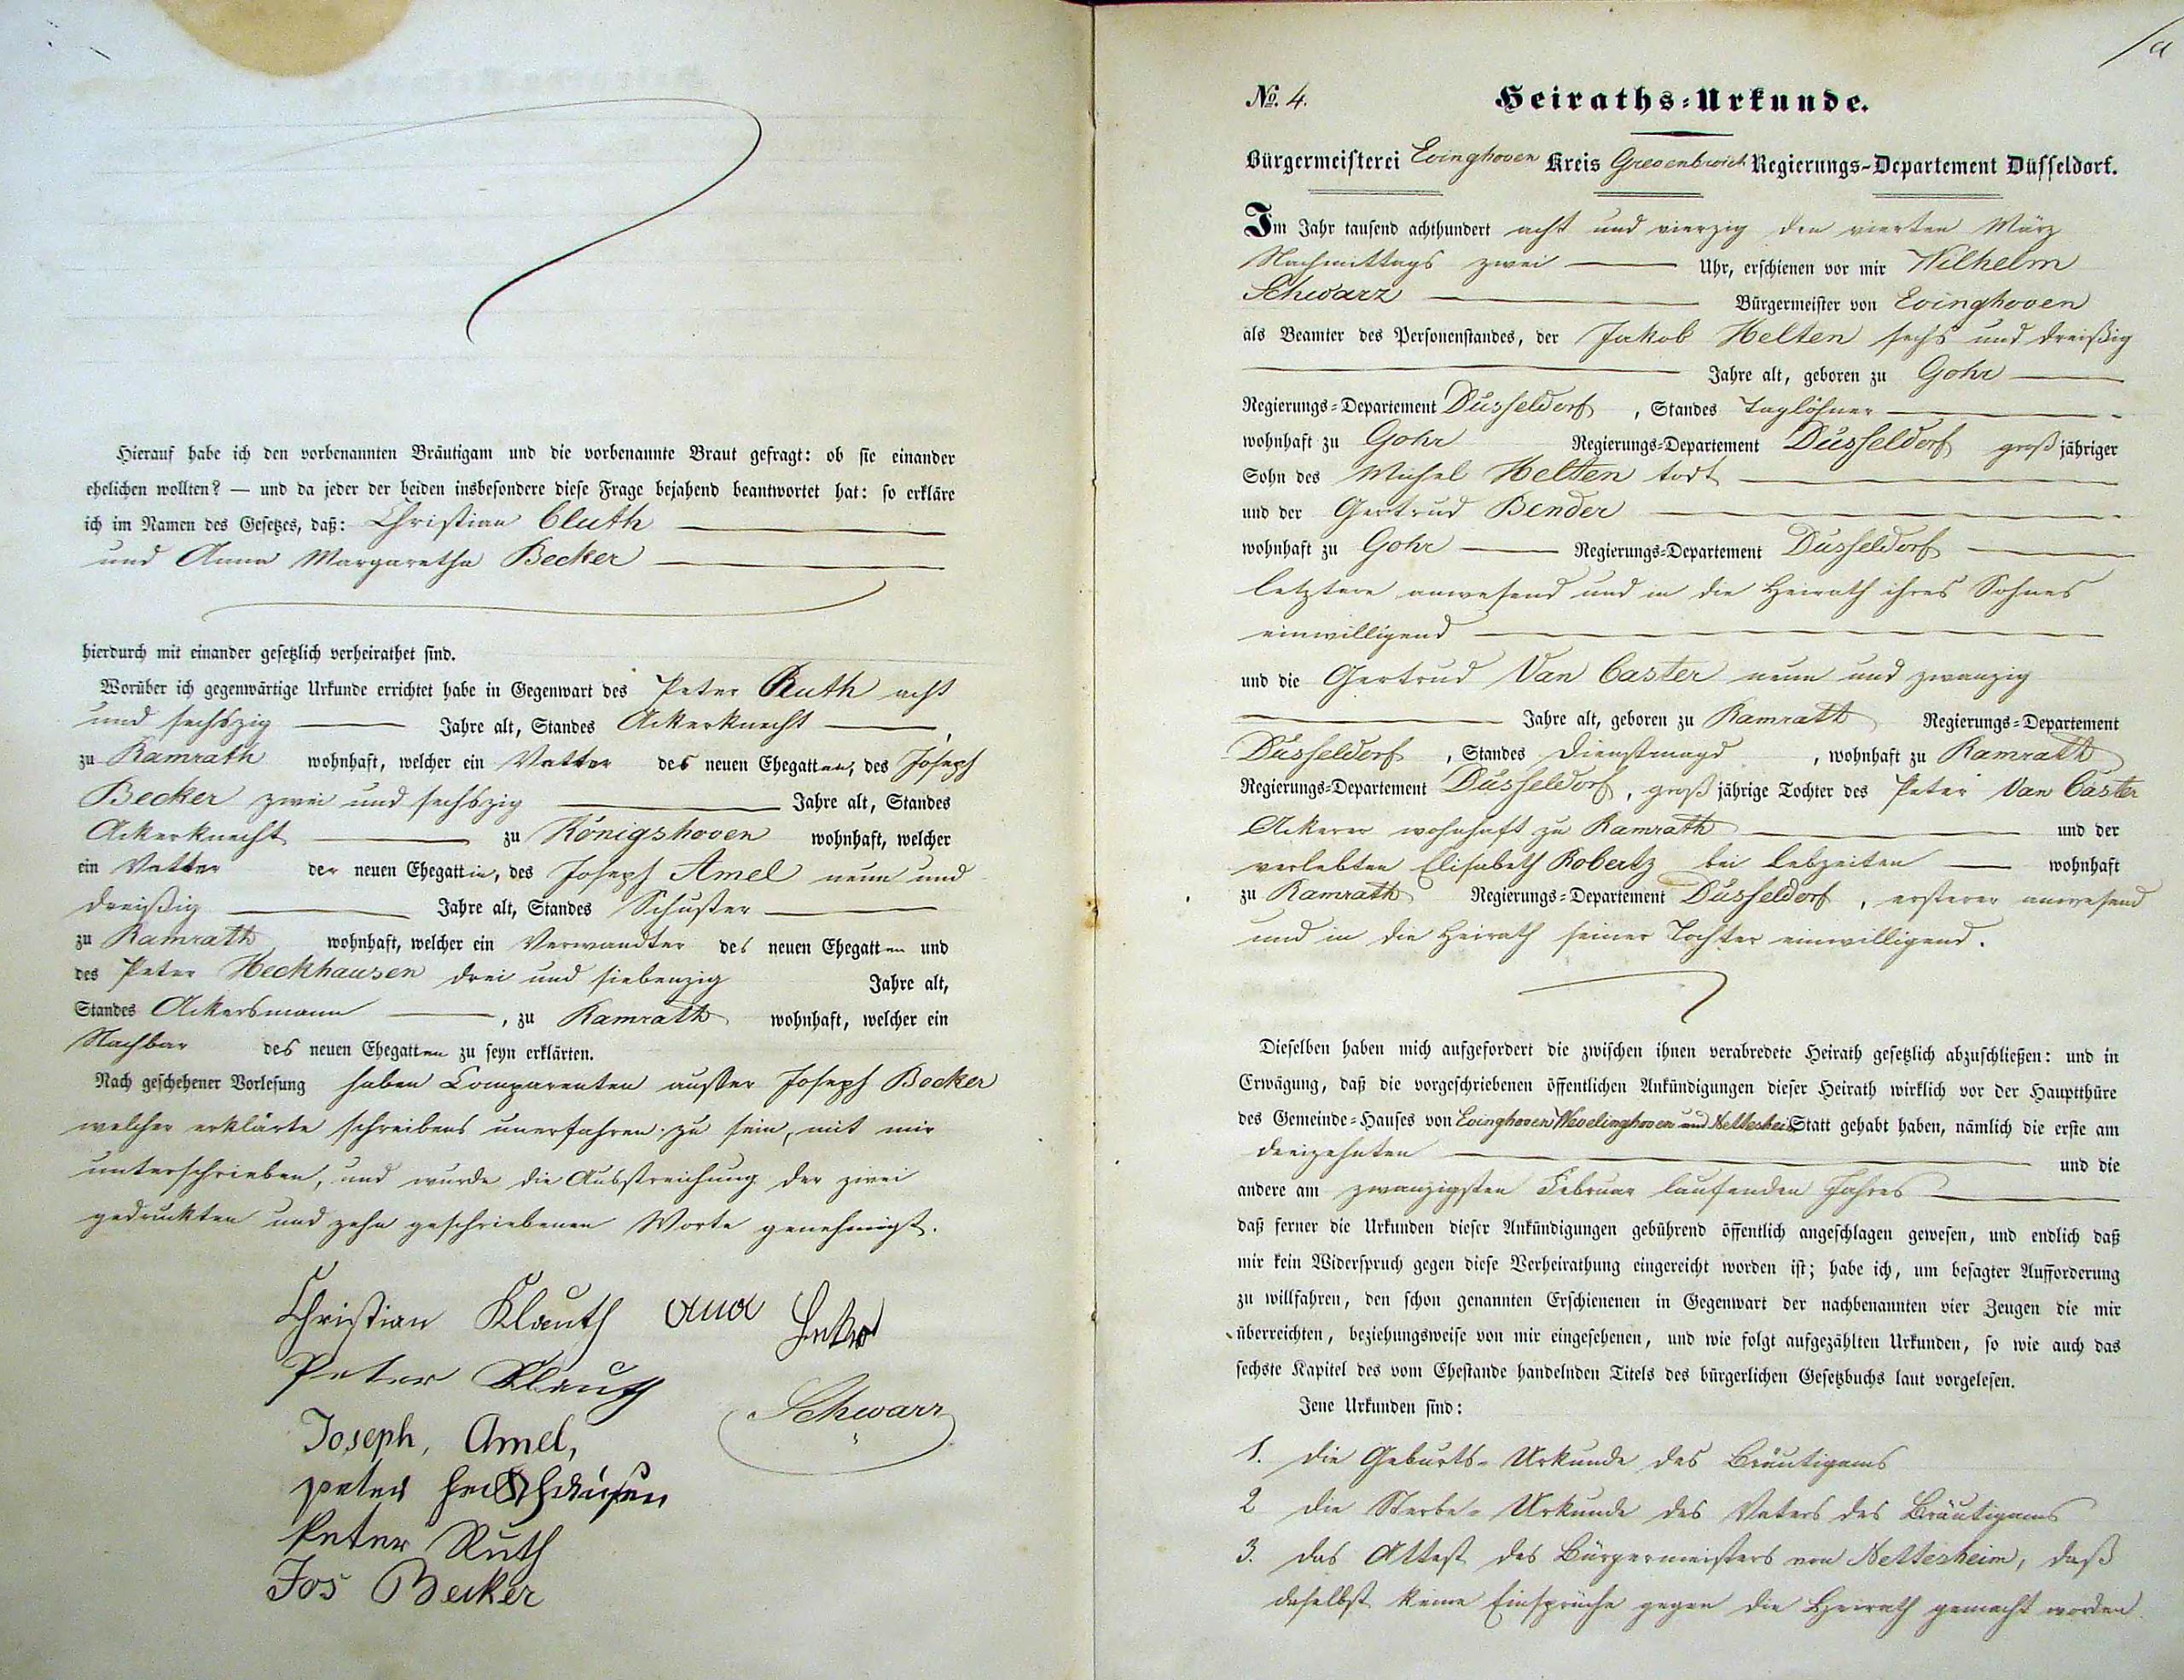 Hierauf habe ich den vorbenannten Bräutigam und die vorbenannte Braut gefragt: ob sie einander
ehelichen wollten? — und da jeder der beiden insbesondere diese Frage bejahend beantwortet hat: so erkläre
ich im Namen des Gesetzes, daß: Christian Cluth
und Anna Margaretha Becker
hierdurch mit einander gesetzlich verheirathet sind.
Worüber ich gegenwärtige Urkunde errichtet habe in Gegenwart des Peter Ruth acht
und sechszig Jahre alt, Standes Ackerknecht,
zu Ramrath wohnhaft, welcher ein Vetter des neuen Ehegatten, des Joseph
Becker zwei und sechszig Jahre alt, Standes
Ackerknecht zu Königshoven wohnhaft, welcher
ein Vetter der neuen Ehegattin, des Joseph Amel neun und
dreißig Jahre alt, Standes Schuster
zu Ramrath wohnhaft, welcher ein Verwandter des neuen Ehegatten und
des Peter Heckhausen drei und siebenzig Jahre alt,
Standes Ackersmann, zu Ramrath wohnhaft, welcher ein
Nachbar des neuen Ehegatten zu seyn erklärten.
Nach geschehener Vorlesung haben Comparenten außer Joseph Becker
welcher erklärte schreibens unerfahren zu sein, mit mir
unterschrieben, und wurde die Ausstreichung der zwei
gedruckten und zehn geschriebenen Worte genehmigt.
Christian Klauth
Peter Klauth
Schwarz
Joseph, Amel,
peter heckhausen
Peter Ruth
Jos Becker
No. 4.
Heiraths-Urkunde.
Bürgermeisterei Evinghoven Kreis Grevenbroich Regierungs-Departement Düsseldorf.
Im Jahr tausend achthundert acht und vierzig den vierten März
Nachmittags zwei Uhr, erschienen vor mir Wilhelm
Schwarz Bürgermeister von Evinghoven
als Beamter des Personenstandes, der Jakob Helten sechs und dreißig
Jahre alt, geboren zu Gohr
Regierungs-Departement Düsseldorf, Standes Taglöhner
wohnhaft zu Gohr Regierungs-Departement Düsseldorf großjähriger
Sohn des Michel Helten todt
und der Gertrud Bender
wohnhaft zu Gohr Regierungs-Departement Düsseldorf
letztere anwesend und in die Heirath ihres Sohnes
einwilligend
und die Gertrud Van Caster neun und zwanzig
Jahre alt, geboren zu Ramrath Regierungs-Departement
Düsseldorf, Standes Dienstmagd, wohnhaft zu Ramrath
Regierungs-Departement Düsseldorf, großjährige Tochter des Peter Van Caster
Ackerer wohnhaft zu Ramrath und der
verlebten Elisabeth Robertz bei Lebzeiten wohnhaft
zu Ramrath Regierungs-Departement Düsseldorf, ersterer anwesend
und in die Heirath seiner Tochter einwilligend.
Dieselben haben mich aufgefordert die zwischen ihnen verabredete Heirath gesetzlich abzuschließen: und in
Erwägung, daß die vorgeschriebenen öffentlichen Ankündigungen dieser Heirath wirklich vor der Hauptthüre
des Gemeinde-Hauses von Evinghoven Wevelinghoven und Nettesheim Statt gehabt haben, nämlich die erste am
dreizehnten und die
andere am zwanzigsten Februar laufenden Jahres
daß ferner die Urkunden dieser Ankündigungen gebührend öffentlich angeschlagen gewesen, und endlich daß
mir kein Widerspruch gegen diese Verheirathung eingereicht worden ist; habe ich, um besagter Aufforderung
zu willfahren, den schon genannten Erschienenen in Gegenwart der nachbenannten vier Zeugen die mir
überreichten, beziehungsweise von mir eingesehenen, und wie folgt aufgezählten Urkunden, so wie auch das
sechste Kapitel des vom Ehestande handelnden Titels des bürgerlichen Gesetzbuchs laut vorgelesen.
Jene Urkunden sind:
1. die Geburts-Urkunde des Bräutigams
2 die Sterbe-Urkunde des Vaters des Bräutigams
3. das Attest des Bürgermeisters von Nettesheim, daß
daselbst keine Einsprüche gegen die Heirath gemacht worden.